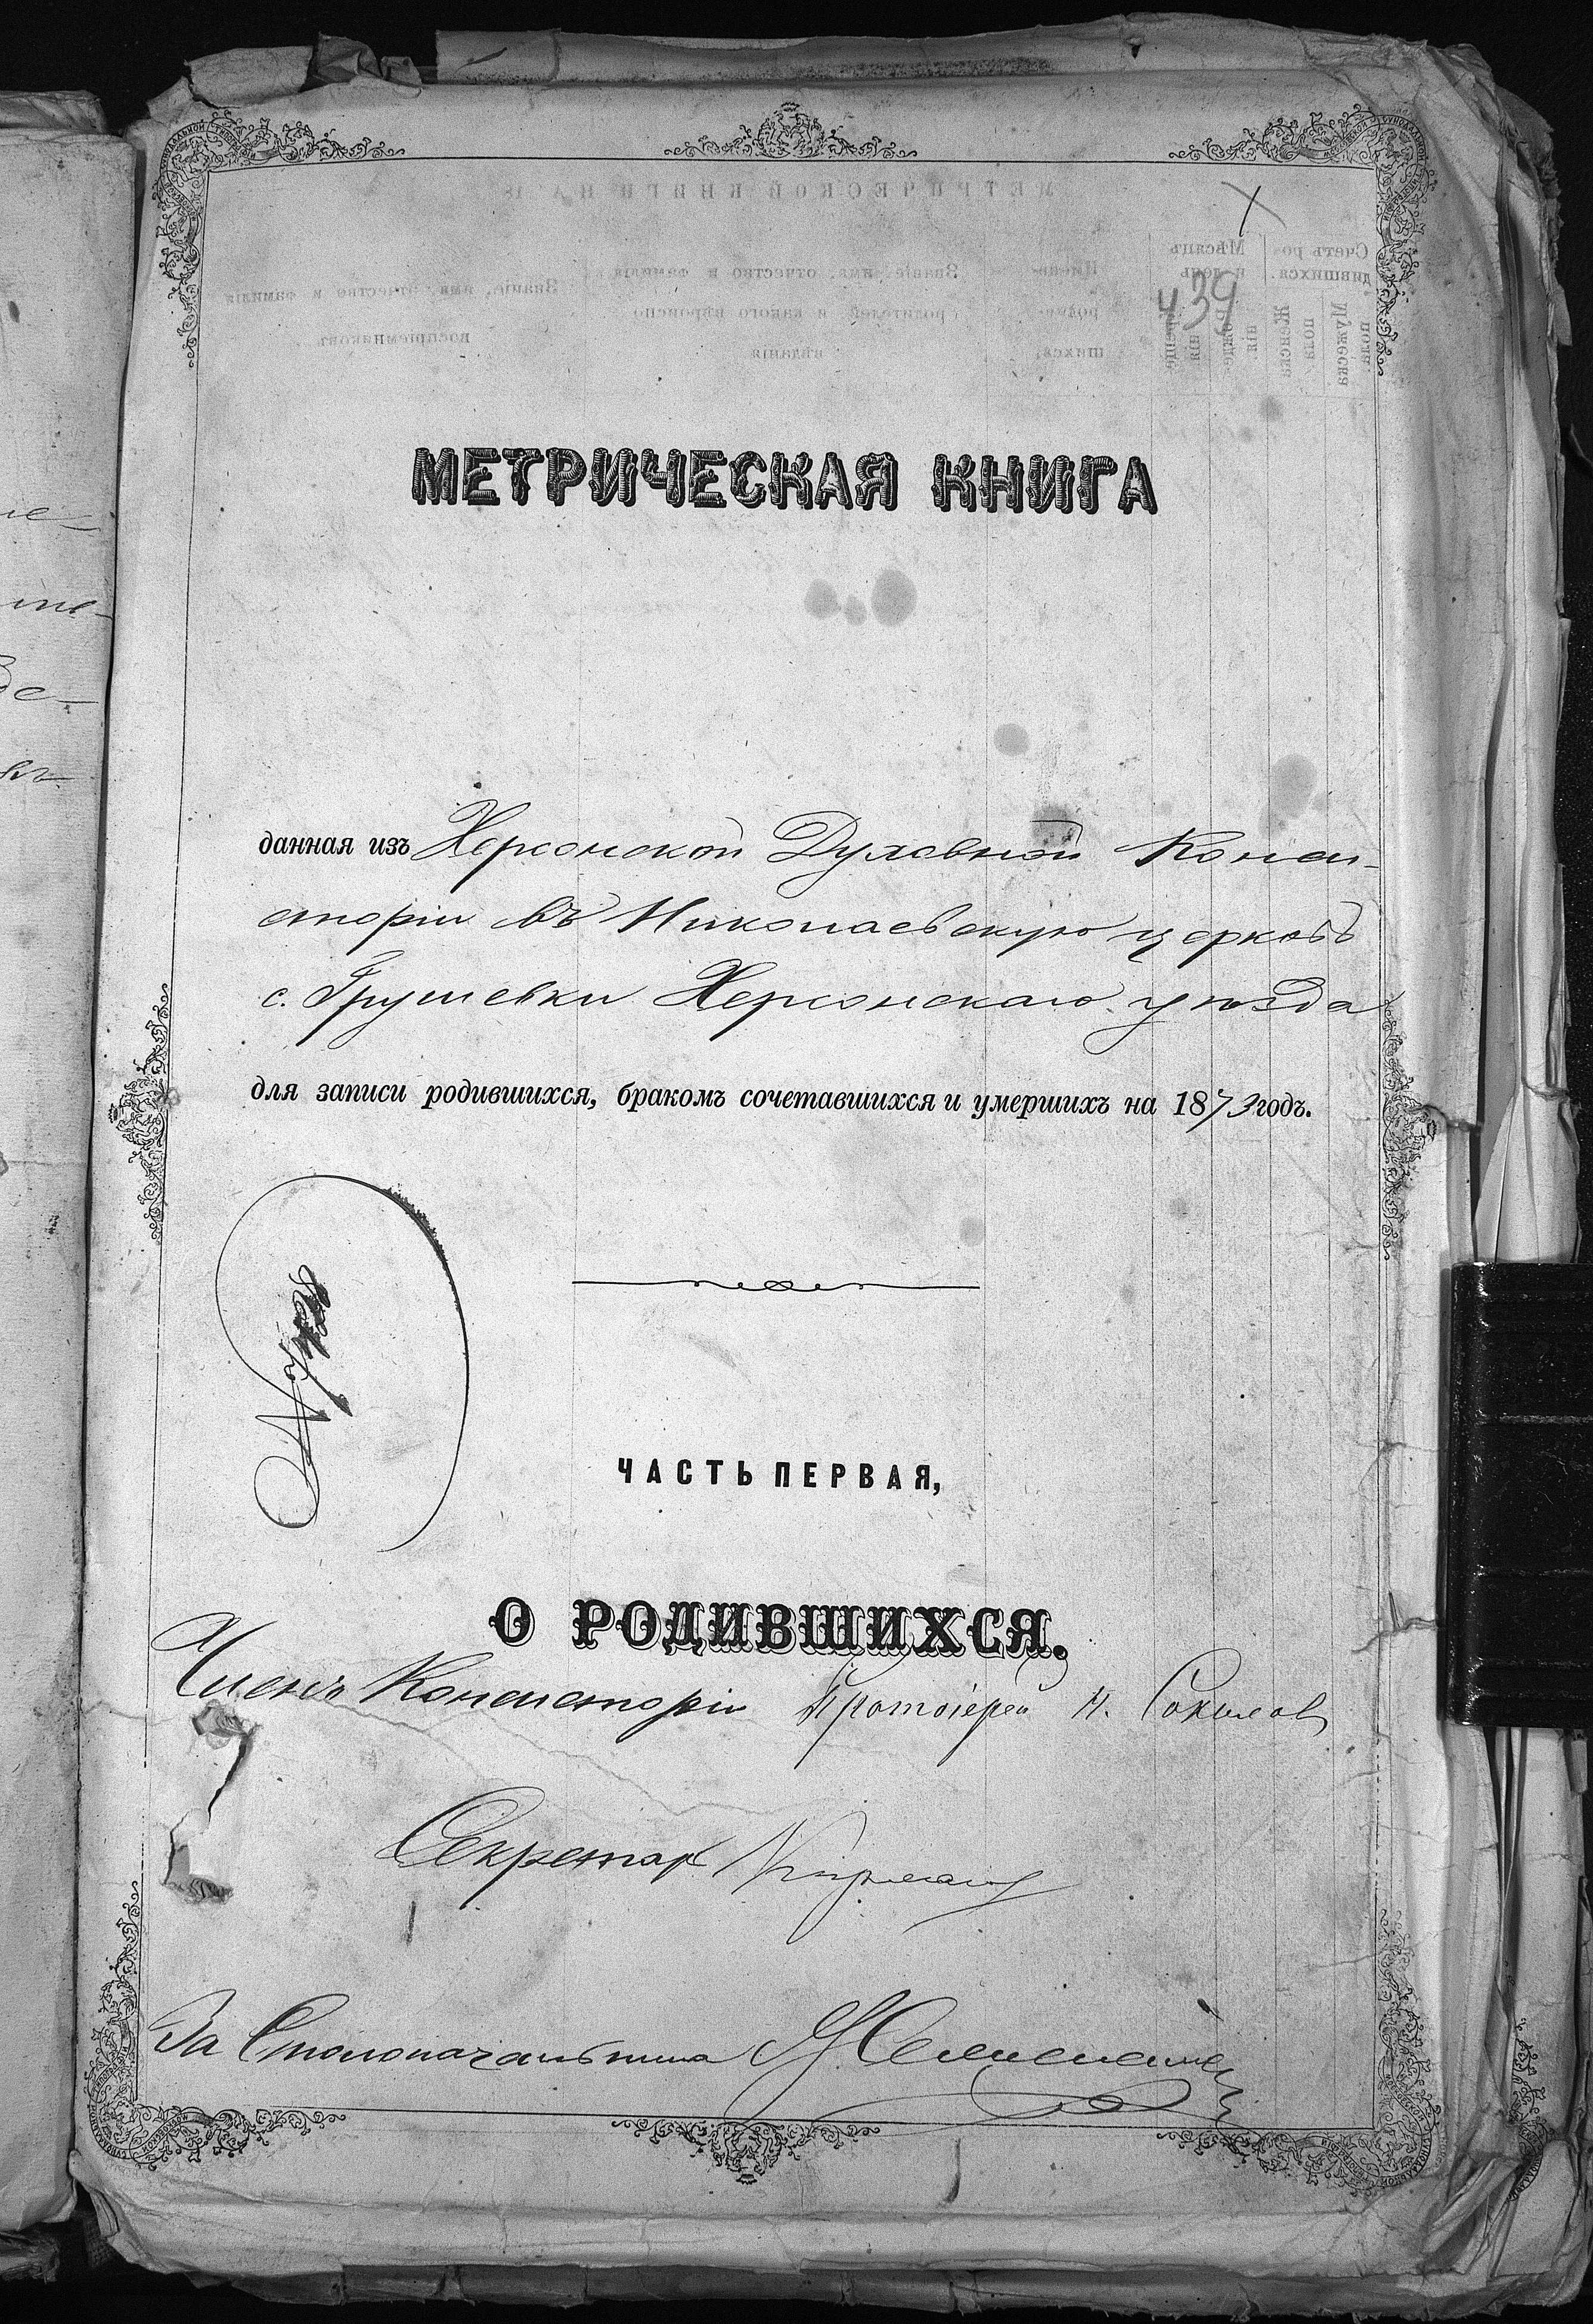 439
МЕТРИЧЕСКАЯ КНИГА
данная изъ Херсонской Духовной Конси-
сторіи въ Николаевскую церковь
с. Грушевки Херсонскаго уѣзда
для записи родившихся, бракомъ сочетавшихся и умершихъ на 1873 годъ.
ЧАСТЬ ПЕРВАЯ,
О РОДИВШИХСЯ.
Членъ Консисторіи Протоіерей Н. Соколов
Секретарь
За Столоначальника